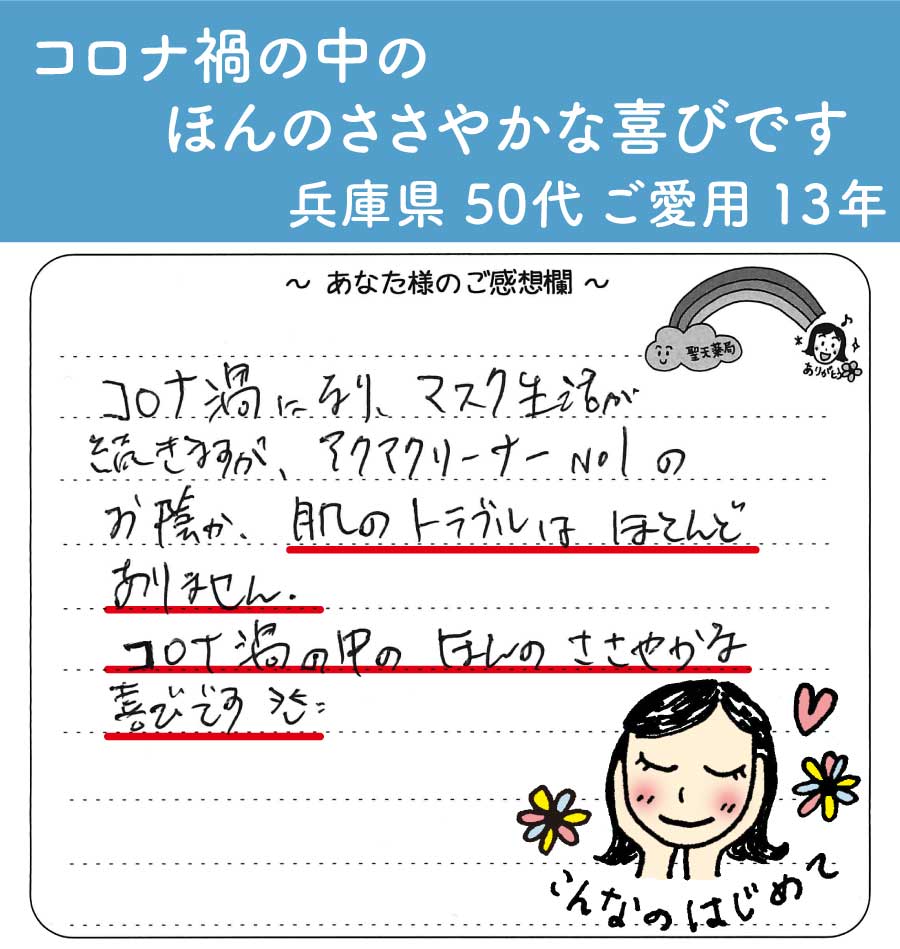 コロナ禍の中の
ほんのささやかな喜びです
兵庫県 50代 ご愛用 13年
～ あなた様のご感想欄 ～
聖天薬局
ありがとう
コロナ渦になり、マスク生活が
続きますが、アクアクリーナー No1 の
お陰か、肌のトラブルは ほとんど
ありません.
コロナ渦の中の ほんの ささやかな
喜びです
こんなのはじめて